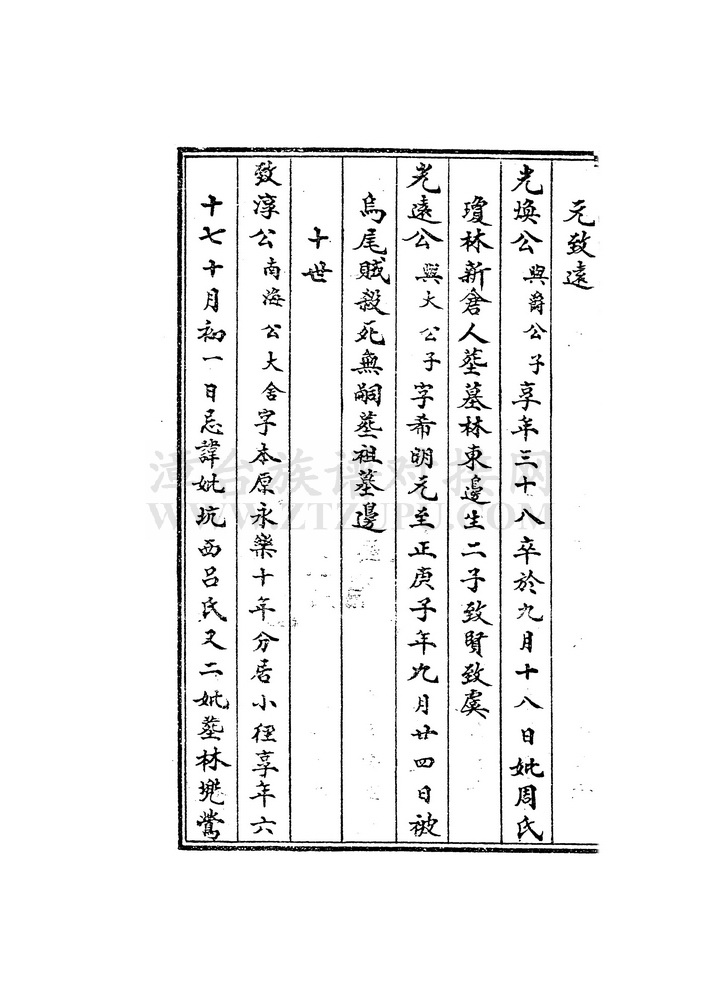 元致遠
光煥公與爵公子享年三十八卒於九月十八日妣周氏
瓊林新倉人塟墓林東邊生二子致賢致虞
光遠公與大公子字希明元至正庚子年九月廿四日被
烏尾賊殺死無嗣塟祖墓邊
十世
致淳公南海公大舍字本原永樂十年分居小徑享年六
十七十月初一日忌諱妣坑西呂氏又二妣塟林兠鶯
漳台族谱对接网
WWW.ZTZUPU.COM